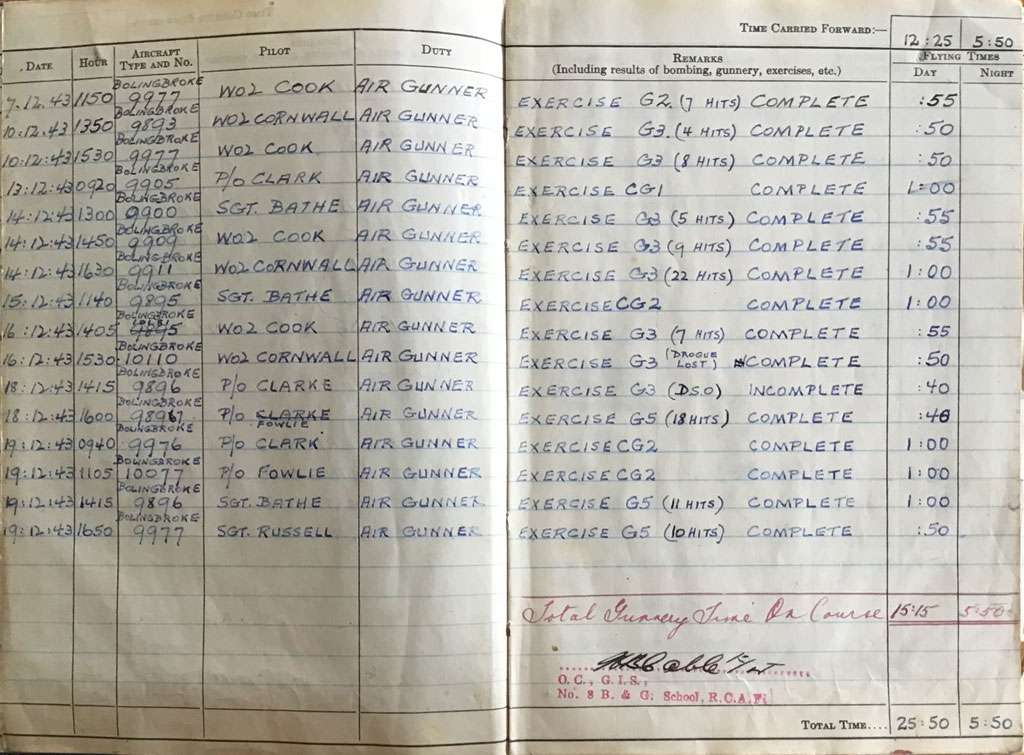 TIME CARRIED FORWARD:— 12:25 5:50
DATE HOUR AIRCRAFT TYPE AND NO. PILOT DUTY REMARKS (Including results of bombing, gunnery, exercises, etc.) FLYING TIMES DAY NIGHT
7.12.43 1150 BOLINGBROKE 9977 WO2 COOK AIR GUNNER EXERCISE G2 (7 HITS) COMPLETE :55
10:12.43 1350 BOLINGBROKE 9893 WO2 CORNWALL AIR GUNNER EXERCISE G3 (4 HITS) COMPLETE :50
10:12:43 1530 BOLINGBROKE 9977 WO2 COOK AIR GUNNER EXERCISE G3 (8 HITS) COMPLETE :50
13:12:43 0920 BOLINGBROKE 9905 P/O CLARK AIR GUNNER EXERCISE CG1 COMPLETE 1:00
14:12:43 1300 BOLINGBROKE 9900 SGT. BATHE AIR GUNNER EXERCISE G3 (5 HITS) COMPLETE :55
14:12:43 1450 BOLINGBROKE 9909 WO2 COOK AIR GUNNER EXERCISE G3 (9 HITS) COMPLETE :55
14:12:43 1630 BOLINGBROKE 9911 WO2 CORNWALL AIR GUNNER EXERCISE G3 (22 HITS) COMPLETE 1:00
15:12:43 1140 BOLINGBROKE 9895 SGT. BATHE AIR GUNNER EXERCISE CG2 COMPLETE 1:00
16:12:43 1405 BOLINGBROKE WO2 COOK AIR GUNNER EXERCISE G3 (7 HITS) COMPLETE :55
16:12:43 1530 BOLINGBROKE 10110 WO2 CORNWALL AIR GUNNER EXERCISE G3 (DROGUE LOST) COMPLETE :50
18:12:43 1415 BOLINGBROKE 9896 P/O CLARKE AIR GUNNER EXERCISE G3 (D.S.O) INCOMPLETE :40
18:12:43 1600 BOLINGBROKE P/O CLARKE FOWLIE AIR GUNNER EXERCISE G5 (18 HITS) COMPLETE
19:12:43 0940 BOLINGBROKE 9976 P/O CLARK AIR GUNNER EXERCISE CG2 COMPLETE 1:00
19:12:43 1105 BOLINGBROKE 10077 P/O FOWLIE AIR GUNNER EXERCISE CG2 COMPLETE 1:00
19:12:43 1415 BOLINGBROKE 9896 SGT. BATHE AIR GUNNER EXERCISE G5 (11 HITS) COMPLETE 1:00
19:12:43 1650 BOLINGBROKE 9977 SGT. RUSSELL AIR GUNNER EXERCISE G5 (10 HITS) COMPLETE :50
Total Gunnery Time On Course 15:15 5:50
O.C., G.I.S.,
No. 8 B. & G. School, R.C.A.F.
TOTAL TIME.... 25:50 5:50